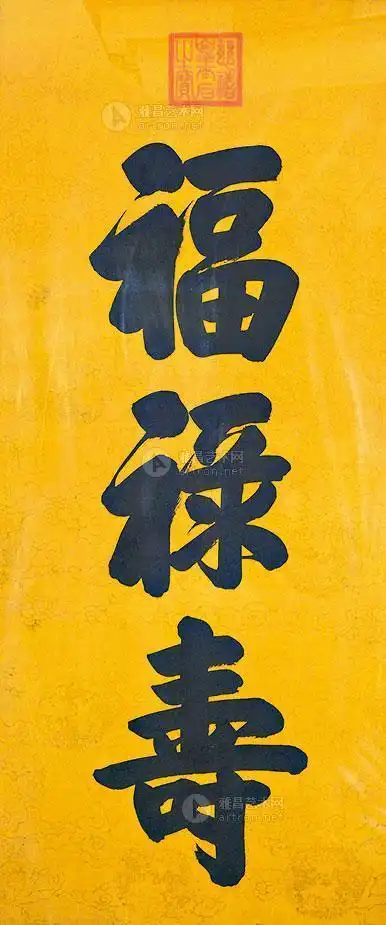 福
祿
壽
雅昌艺术网
artron.net
雅昌艺术网
artron.net
雅昌艺术网
artron.net